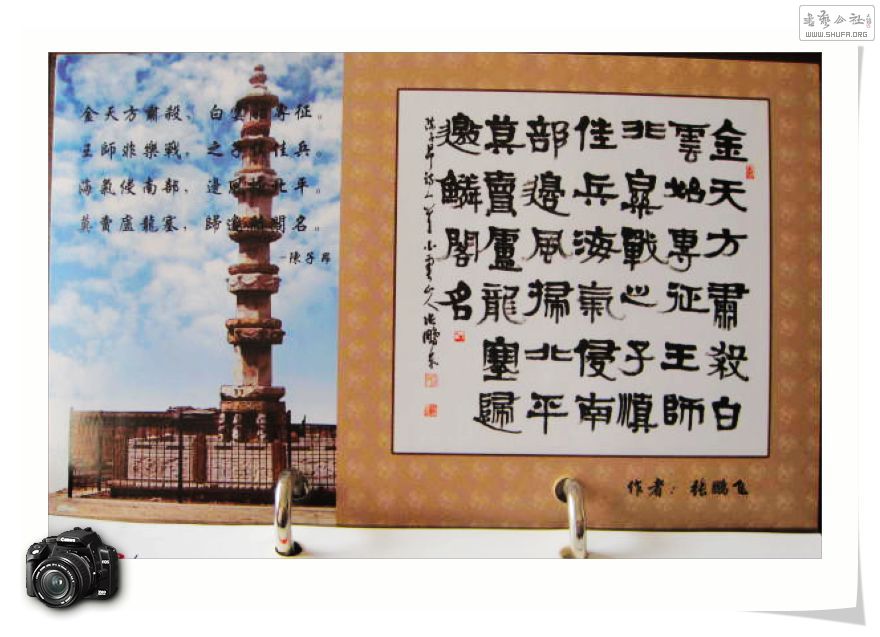 書藝公社
WWW.SHUFA.ORG
金天方肅殺，白雲始專征。
王師非樂戰，之子慎佳兵。
海氣侵南部，邊風掃北平。
莫賣盧龍塞，歸邀麟閣名。
-陳子昂
金天方肅殺白
雲始專征王師
非樂戰之子慎
佳兵海氣侵南
部邊風掃北平
莫賣盧龍塞歸
邀麟閣名
陈子昂詩一首
作者：张鹏飞
Canon
EOS